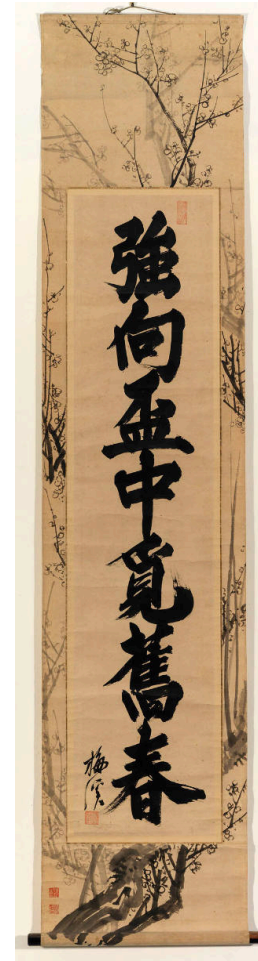 強向盃中覓舊春
梅溪